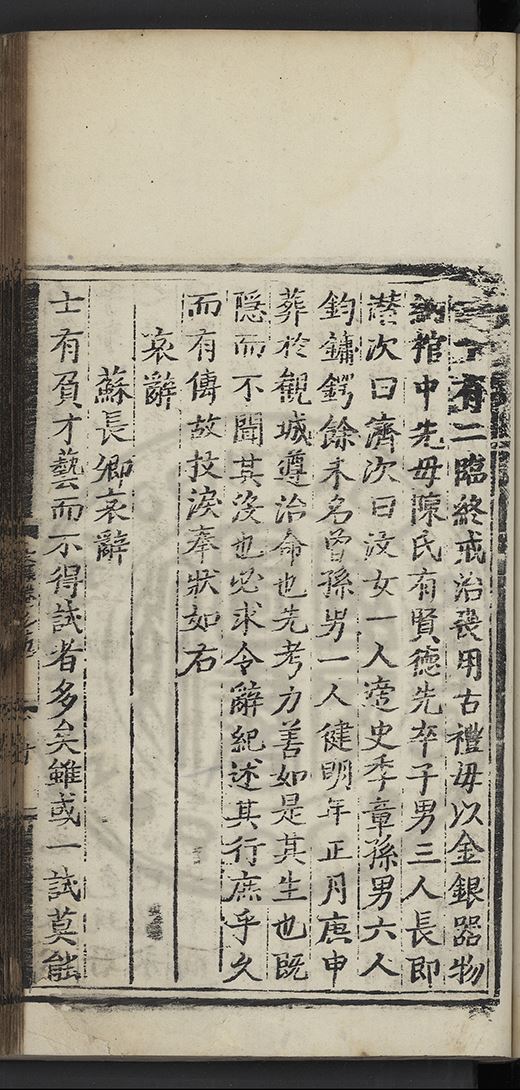 有二臨終戒治喪用古禮毋以金銀器物
納棺中先毋陳氏有賢德先卒子男三人長即
次曰濟次曰汶女一人適史季章孫男六人
鈞鏞鍔餘未名曾孫男一人健明年正月庚申
葬於觀城遵治命也先考力善如是其生也旣
隱而不聞其沒也必求令辭紀述其行庶乎久
而有傳故抆淚奉狀如右
哀辭
蘇長卿哀辭
士有負才藝而不得試者多矣雖或一試莫能